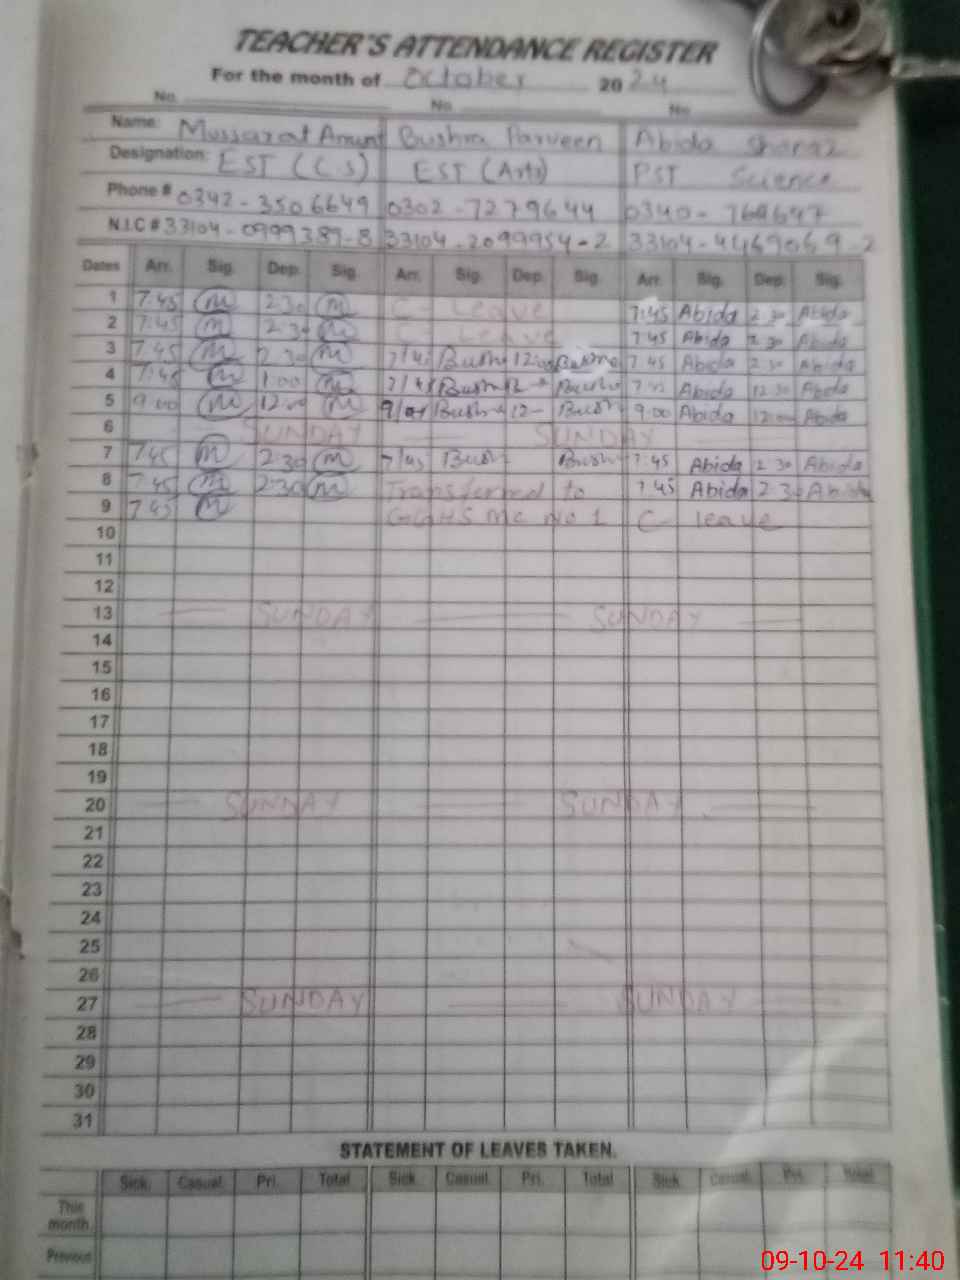 TEACHER'S ATTENDANCE REGISTER
For the month of October 2024
No. No. No
Name: Mussarat Bushra Parveen Abida
Designation: EST (C.S) EST (Arts) PST Science
Phone # 0342-3506649 0302-7279644 0340-
N.I.C # 33104-0999389-8 33104-2099954-2 33104-4469069-2
Dates Arr. Sig. Dep. Sig. Arr. Sig. Dep. Sig. Arr. Sig. Dep. Sig.
1 7:45 M 2:30 M C- Leave 7:45 Abida 2 30 Abida
2 7:45 M 2:30 M C- Leave 7 45 Abida 2 30 Abida
3 7:45 M 2:30 M 7/45 Bushra 12:00 Bushra 7 45 Abida 2 30 Abida
4 7:45 M 1:00 M 7/45 Bushra 12 Bushra Abida 12 30 Abida
5 9:00 M 12:00 M Bushra 12- Bush 9:00 Abida 12:00 Abida
6 SUNDAY SUNDAY
7 7:45 M 2:30 M 7/45 Bush Bush 7:45 Abida 2 30 Abida
8 7:45 M 2:30 M Transferred to 7 45 Abida 2 30 Abida
9 7:45 M GGHS MC No 1 C- leave
10
11
12
13 SUNDAY SUNDAY
14
15
16
17
18
19
20 SUNDAY SUNDAY
21
22
23
24
25
26
27 SUNDAY SUNDAY
28
29
30
31
STATEMENT OF LEAVES TAKEN.
Sick. Casual. Pri. Total Sick. Casual. Pri. Total Sick. Casual. Pri. Total
This month
Previous
09-10-24 11:40